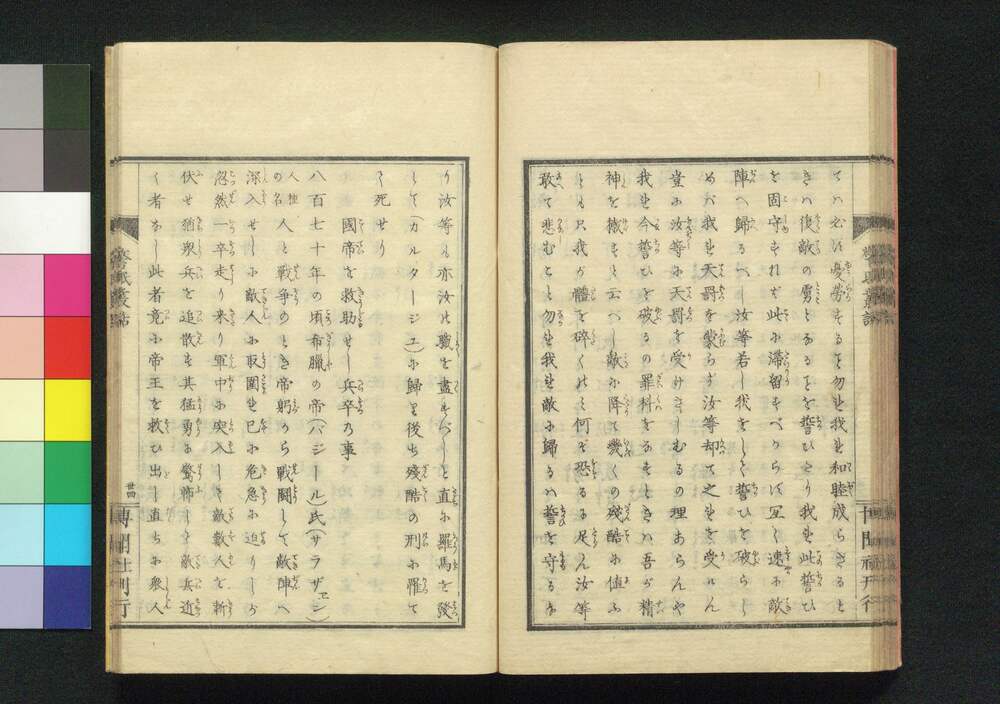 てハ必ス憂勞するヿ勿れ我れ和睦成らざると
きハ復敵の虜となるヿを誓ひたり我れ此誓ひ
を固守すれバ此に滞留すべからす冝く速に敵
陣へ歸るべし汝等若し我をして誓ひを破らし
めバ我れ天罰を蒙らず汝等却て之れを受けん
豈に汝等に天罰を受けさしむるの理あらんや
我れ今誓ひを破るの罪科をなすときハ吾が精
神を
とも只我が體を碎くのミ何ぞ恐るゝに足ん汝等
敢て悲むこと勿れ我れ敵に歸るハ誓を守るな
り汝等も亦汝の職を盡すべしと直に羅馬を發
して(カルタージユ)に歸り後ち殘酷の刑に罹て
死せり
國帝を救助せし兵卒の事
八百七十年の頃希臘の帝(バジール)氏(サラザヱン)
人種の名
人と戰争のとき帝躬から戰闘して敵陣へ
深入せしに敵人に取圍れ已に危急に迫りしが
忽然一卒走り来り軍中に突入して敵數人を斬
伏せ猶衆兵を追散す其猛勇に驚怖し敵兵近
く者なし此者竟に帝王を救ひ出し直ちに衆人
叢話
廿四
博聞社刊行